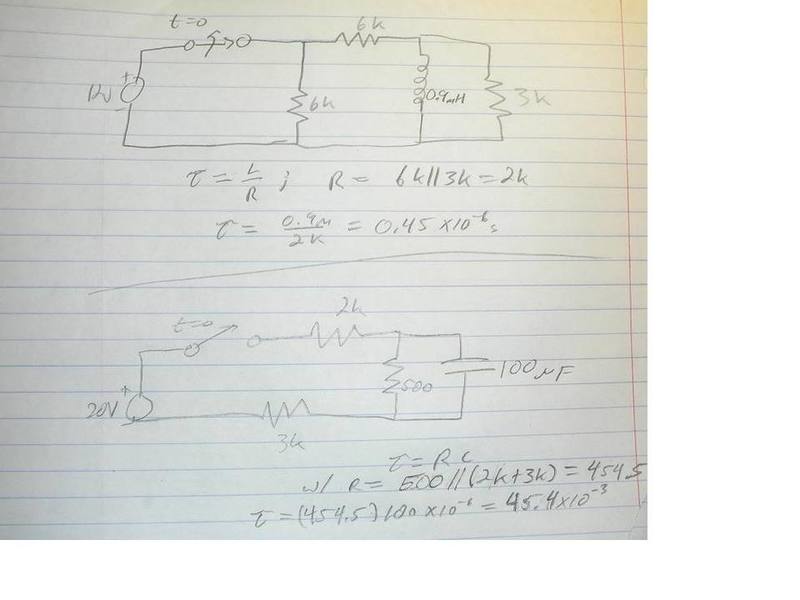 t=0
6k
12V
+
6k
0.9mH
3k
τ = L/R ; R = 6k||3k = 2k
τ = 0.9m/2k = 0.45 x10⁻⁶ s
t=0
2k
+
20V
500
100μF
3k
τ = R C
w/ R = 500 // (2k+3k) = 454.5
τ = (454.5) 100 x10⁻⁶ = 45.4 x10⁻³